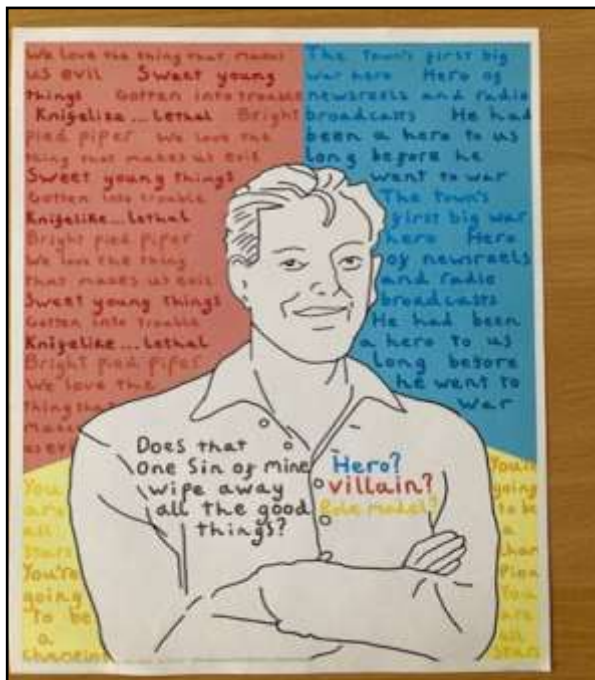 We love the thing that makes
us evil Sweet young
things Gotten into trouble
Knifelike...lethal Bright
pied piper We love the
thing that makes us evil
Sweet young things
Gotten into trouble
Knifelike...lethal
Bright pied piper
We love the thing
that makes us evil
Sweet young things
Gotten into trouble
Knifelike...lethal
Bright pied piper
We love the
thing that
makes
us evil
The Town's first big
war hero Hero of
newsreels and radio
broadcasts He had
been a hero to us
long before he
went to war
The town's
first big war
hero Hero
of newsreels
and radio
broadcasts
He had been
a hero to us
long before
he went to
war
Does that
one Sin of mine
wipe away
all the good
things?
Hero?
villain?
Role model?
You
are
all
stars
You're
going
to be
a
champion
You're
going
to be
a
cham
pion
You
are
all
stars